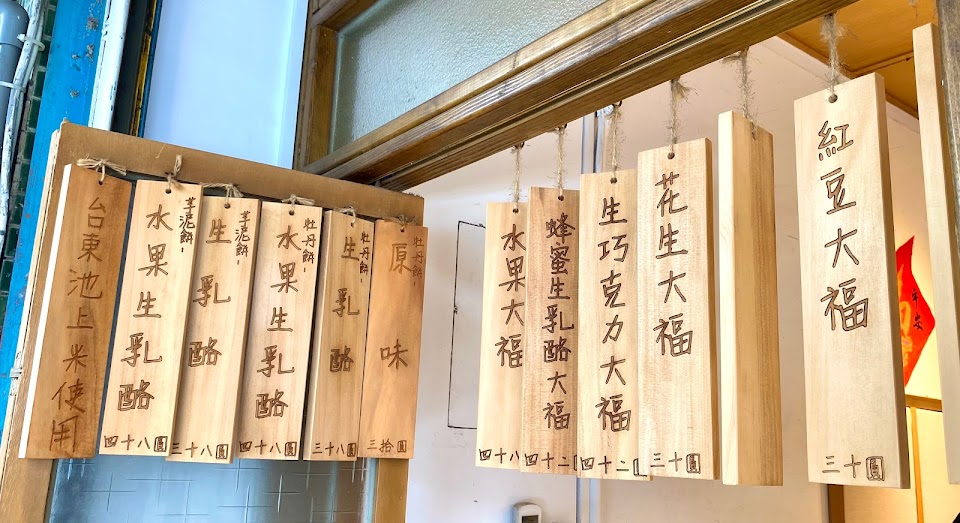 平安
紅豆大福
三十圓
花生大福
三十圓
生巧克力大福
四十二
蜂蜜生乳酪大福
四十二
水果大福
四十八
牡丹餅-
原味
三拾圓
牡丹餅-
生乳酪
三十八圓
牡丹餅-
水果生乳酪
四十八圓
芋泥餅-
生乳酪
三十八圓
芋泥餅-
水果生乳酪
四十八圓
台東池上米使用